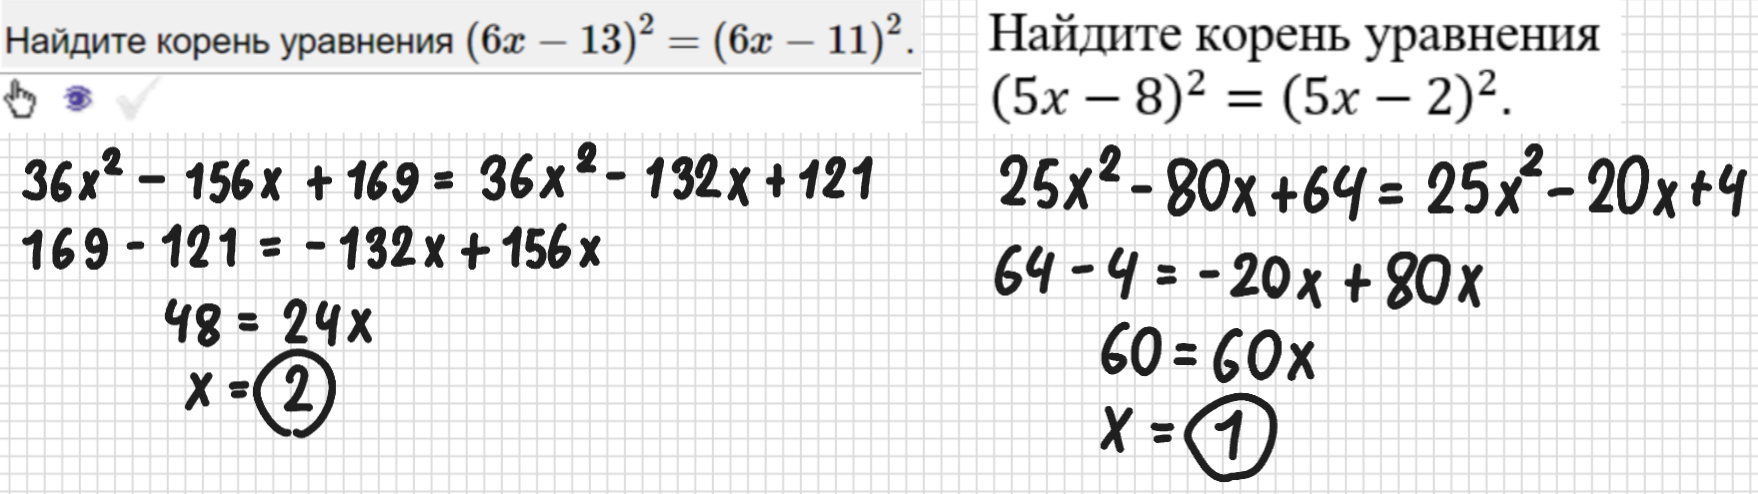 Найдите корень уравнения (6x − 13)² = (6x − 11)².
36x² − 156x + 169 = 36x² − 132x + 121
169 − 121 = −132x + 156x
48 = 24x
x = 2
Найдите корень уравнения
(5x − 8)² = (5x − 2)².
25x² − 80x + 64 = 25x² − 20x + 4
64 − 4 = −20x + 80x
60 = 60x
x = 1